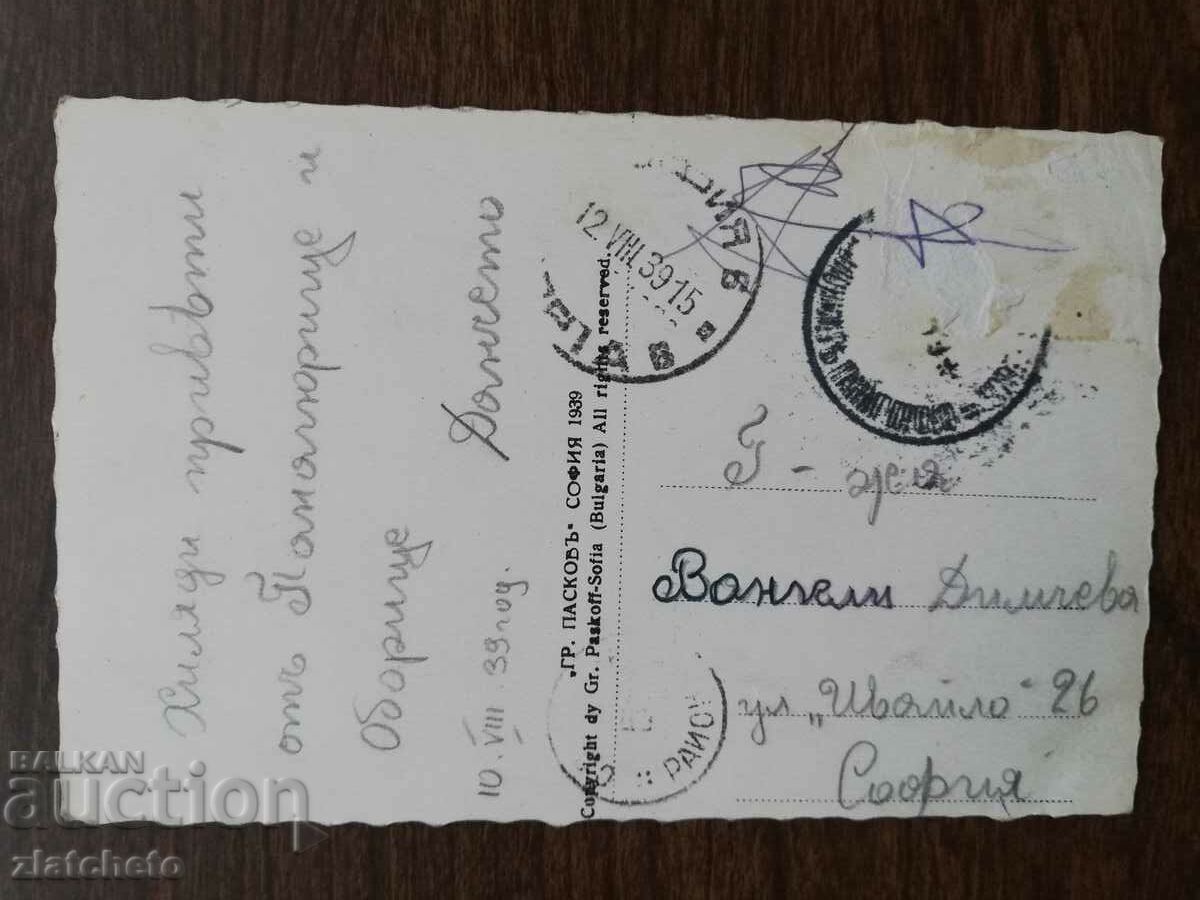 Хиляди привѣти
отъ Панагюрище и
Оборище
10. VIII. 39 год.
Дончето
„ГР. ПАСКОВЪ“ СОФИЯ 1939
Copyright dy Gr. Paskoff-Sofia (Bulgaria) All rights reserved.
12.VIII.39 15
РАЙОН
Г-жа
Вангели Димчева
ул „Ивайло“ 26
София
BALKAN
auction
zlatcheto